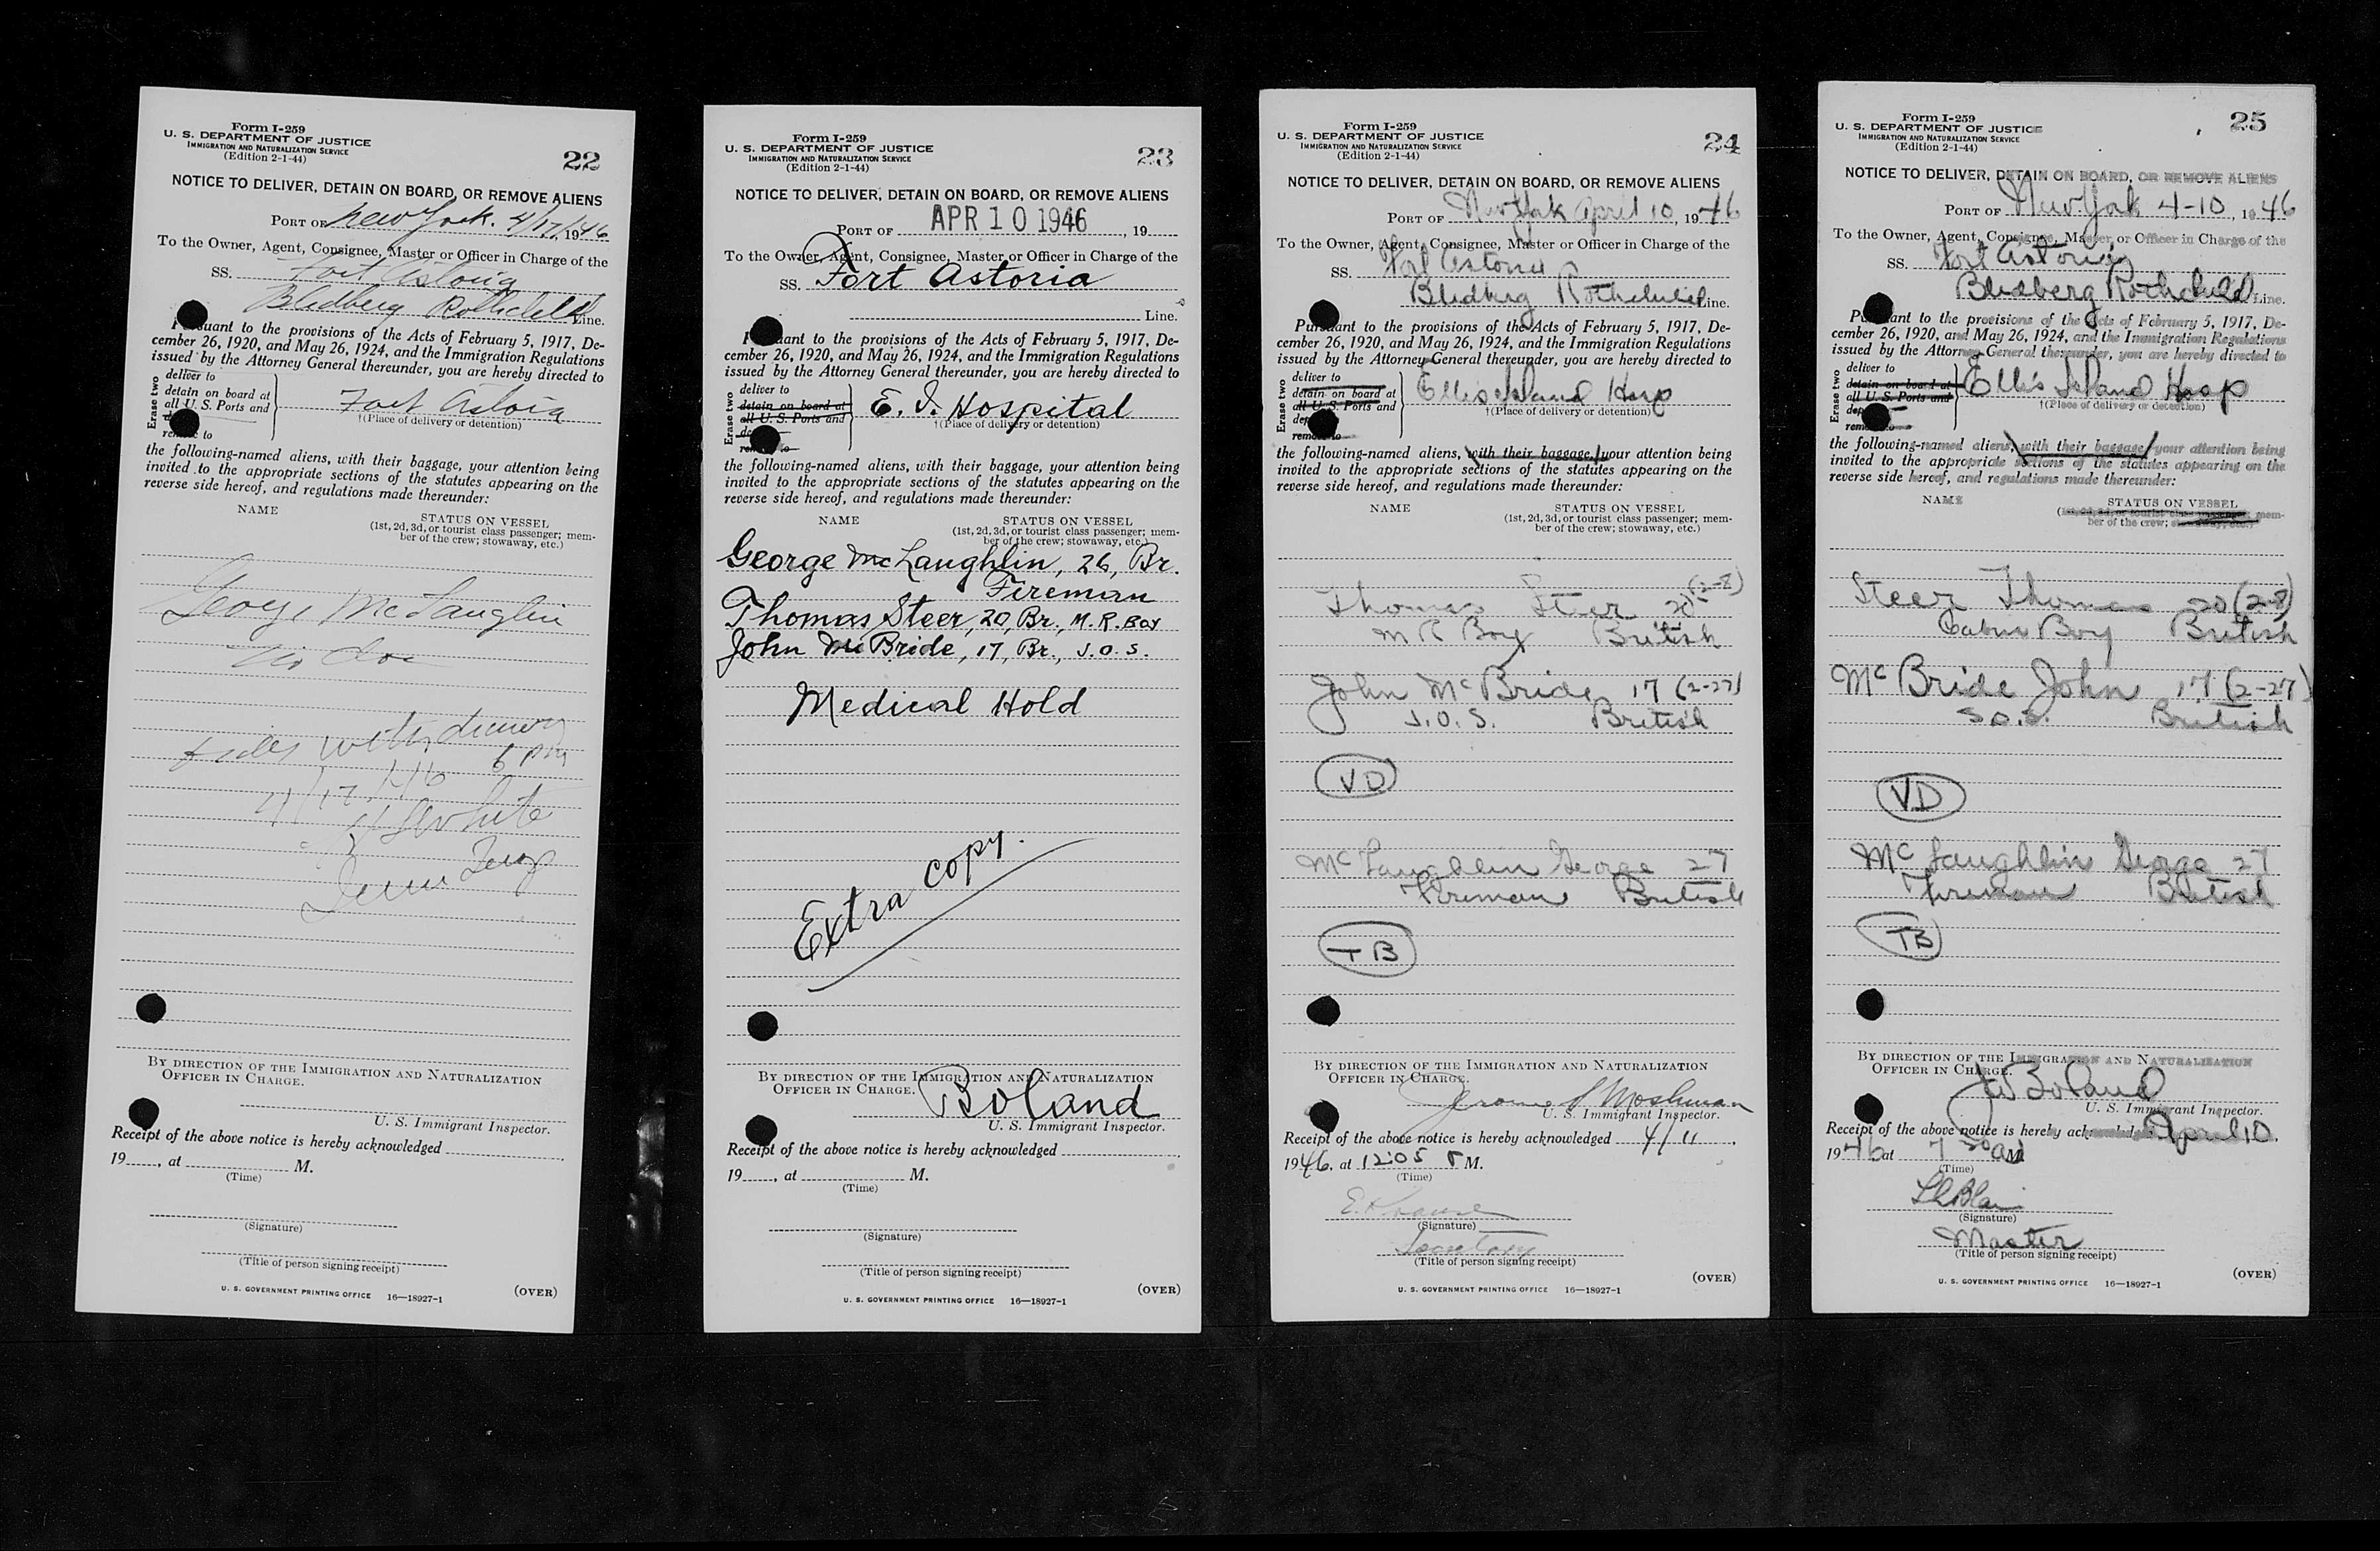 Form I-259
U. S. DEPARTMENT OF JUSTICE
IMMIGRATION AND NATURALIZATION SERVICE
(Edition 2-1-44)
22
NOTICE TO DELIVER, DETAIN ON BOARD, OR REMOVE ALIENS
PORT OF New York. 4/17/1946
To the Owner, Agent, Consignee, Master or Officer in Charge of the
SS. Fort Astoria
Blidberg Rothchild Line.
Pursuant to the provisions of the Acts of February 5, 1917, De-
cember 26, 1920, and May 26, 1924, and the Immigration Regulations
issued by the Attorney General thereunder, you are hereby directed to
Erase two
deliver to
detain on board at
all U. S. Ports and
remove to
Fort Astoria
†(Place of delivery or detention)
the following-named aliens, with their baggage, your attention being
invited to the appropriate sections of the statutes appearing on the
reverse side hereof, and regulations made thereunder:
NAME
STATUS ON VESSEL
(1st, 2d, 3d, or tourist class passenger; mem-
ber of the crew; stowaway, etc.)
George McLauglin
no doc
withdrawn
6 pm
4/17/46
White
BY DIRECTION OF THE IMMIGRATION AND NATURALIZATION
OFFICER IN CHARGE.
U. S. Immigrant Inspector.
Receipt of the above notice is hereby acknowledged
19____, at ____ M.
(Time)
(Signature)
(Title of person signing receipt)
U. S. GOVERNMENT PRINTING OFFICE 16—18927-1
(OVER)
Form I-259
U. S. DEPARTMENT OF JUSTICE
IMMIGRATION AND NATURALIZATION SERVICE
(Edition 2-1-44)
23
NOTICE TO DELIVER, DETAIN ON BOARD, OR REMOVE ALIENS
PORT OF APR 10 1946, 19
To the Owner, Agent, Consignee, Master or Officer in Charge of the
SS. Fort Astoria
Line.
Pursuant to the provisions of the Acts of February 5, 1917, De-
cember 26, 1920, and May 26, 1924, and the Immigration Regulations
issued by the Attorney General thereunder, you are hereby directed to
Erase two
deliver to
detain on board at
all U. S. Ports and
remove to
E. I. Hospital
†(Place of delivery or detention)
the following-named aliens, with their baggage, your attention being
invited to the appropriate sections of the statutes appearing on the
reverse side hereof, and regulations made thereunder:
NAME
STATUS ON VESSEL
(1st, 2d, 3d, or tourist class passenger; mem-
ber of the crew; stowaway, etc.)
George McLaughlin, 26, Br.
Fireman
Thomas Steer, 20, Br., M. R. Boy
John McBride, 17, Br., J. O. S.
Medical Hold
Extra copy.
BY DIRECTION OF THE IMMIGRATION AND NATURALIZATION
OFFICER IN CHARGE.
Boland
U. S. Immigrant Inspector.
Receipt of the above notice is hereby acknowledged
19____, at ____ M.
(Time)
(Signature)
(Title of person signing receipt)
U. S. GOVERNMENT PRINTING OFFICE 16—18927-1
(OVER)
Form I-259
U. S. DEPARTMENT OF JUSTICE
IMMIGRATION AND NATURALIZATION SERVICE
(Edition 2-1-44)
24
NOTICE TO DELIVER, DETAIN ON BOARD, OR REMOVE ALIENS
PORT OF New York April 10, 1946
To the Owner, Agent, Consignee, Master or Officer in Charge of the
SS. Fort Astoria
Blidberg Rothchild Line.
Pursuant to the provisions of the Acts of February 5, 1917, De-
cember 26, 1920, and May 26, 1924, and the Immigration Regulations
issued by the Attorney General thereunder, you are hereby directed to
Erase two
deliver to
detain on board at
all U. S. Ports and
remove to
Ellis Island Hosp
†(Place of delivery or detention)
the following-named aliens, with their baggage, your attention being
invited to the appropriate sections of the statutes appearing on the
reverse side hereof, and regulations made thereunder:
NAME
STATUS ON VESSEL
(1st, 2d, 3d, or tourist class passenger; mem-
ber of the crew; stowaway, etc.)
Thomas Steer 20 (2-8)
M R Boy British
John McBride 17 (2-27)
J. O. S. British
VD
McLaughlin George 27
Fireman British
TB
BY DIRECTION OF THE IMMIGRATION AND NATURALIZATION
OFFICER IN CHARGE.
Jerome S Moshman
U. S. Immigrant Inspector.
Receipt of the above notice is hereby acknowledged 4/11,
1946, at 12:05 P M.
(Time)
E. Krause
(Signature)
Secretary
(Title of person signing receipt)
U. S. GOVERNMENT PRINTING OFFICE 16—18927-1
(OVER)
Form I-259
U. S. DEPARTMENT OF JUSTICE
IMMIGRATION AND NATURALIZATION SERVICE
(Edition 2-1-44)
25
NOTICE TO DELIVER, DETAIN ON BOARD, OR REMOVE ALIENS
PORT OF New York 4-10, 1946
To the Owner, Agent, Consignee, Master or Officer in Charge of the
SS. Fort Astoria
Blidberg Rothchild Line.
Pursuant to the provisions of the Acts of February 5, 1917, De-
cember 26, 1920, and May 26, 1924, and the Immigration Regulations
issued by the Attorney General thereunder, you are hereby directed to
Erase two
deliver to
detain on board at
all U. S. Ports and
remove to
Ellis Island Hosp
†(Place of delivery or detention)
the following-named aliens, with their baggage, your attention being
invited to the appropriate sections of the statutes appearing on the
reverse side hereof, and regulations made thereunder:
NAME
STATUS ON VESSEL
(1st, 2d, 3d, or tourist class passenger; mem-
ber of the crew; stowaway, etc.)
Steer Thomas 20 (2-8)
Cabin Boy British
McBride John 17 (2-27)
S.O.S. British
VD
McLaughlin George 27
Fireman British
TB
BY DIRECTION OF THE IMMIGRATION AND NATURALIZATION
OFFICER IN CHARGE.
JW Boland
U. S. Immigrant Inspector.
Receipt of the above notice is hereby acknowledged April 10,
1946 at 7 30 AM
(Time)
(Signature)
Master
(Title of person signing receipt)
U. S. GOVERNMENT PRINTING OFFICE 16—18927-1
(OVER)